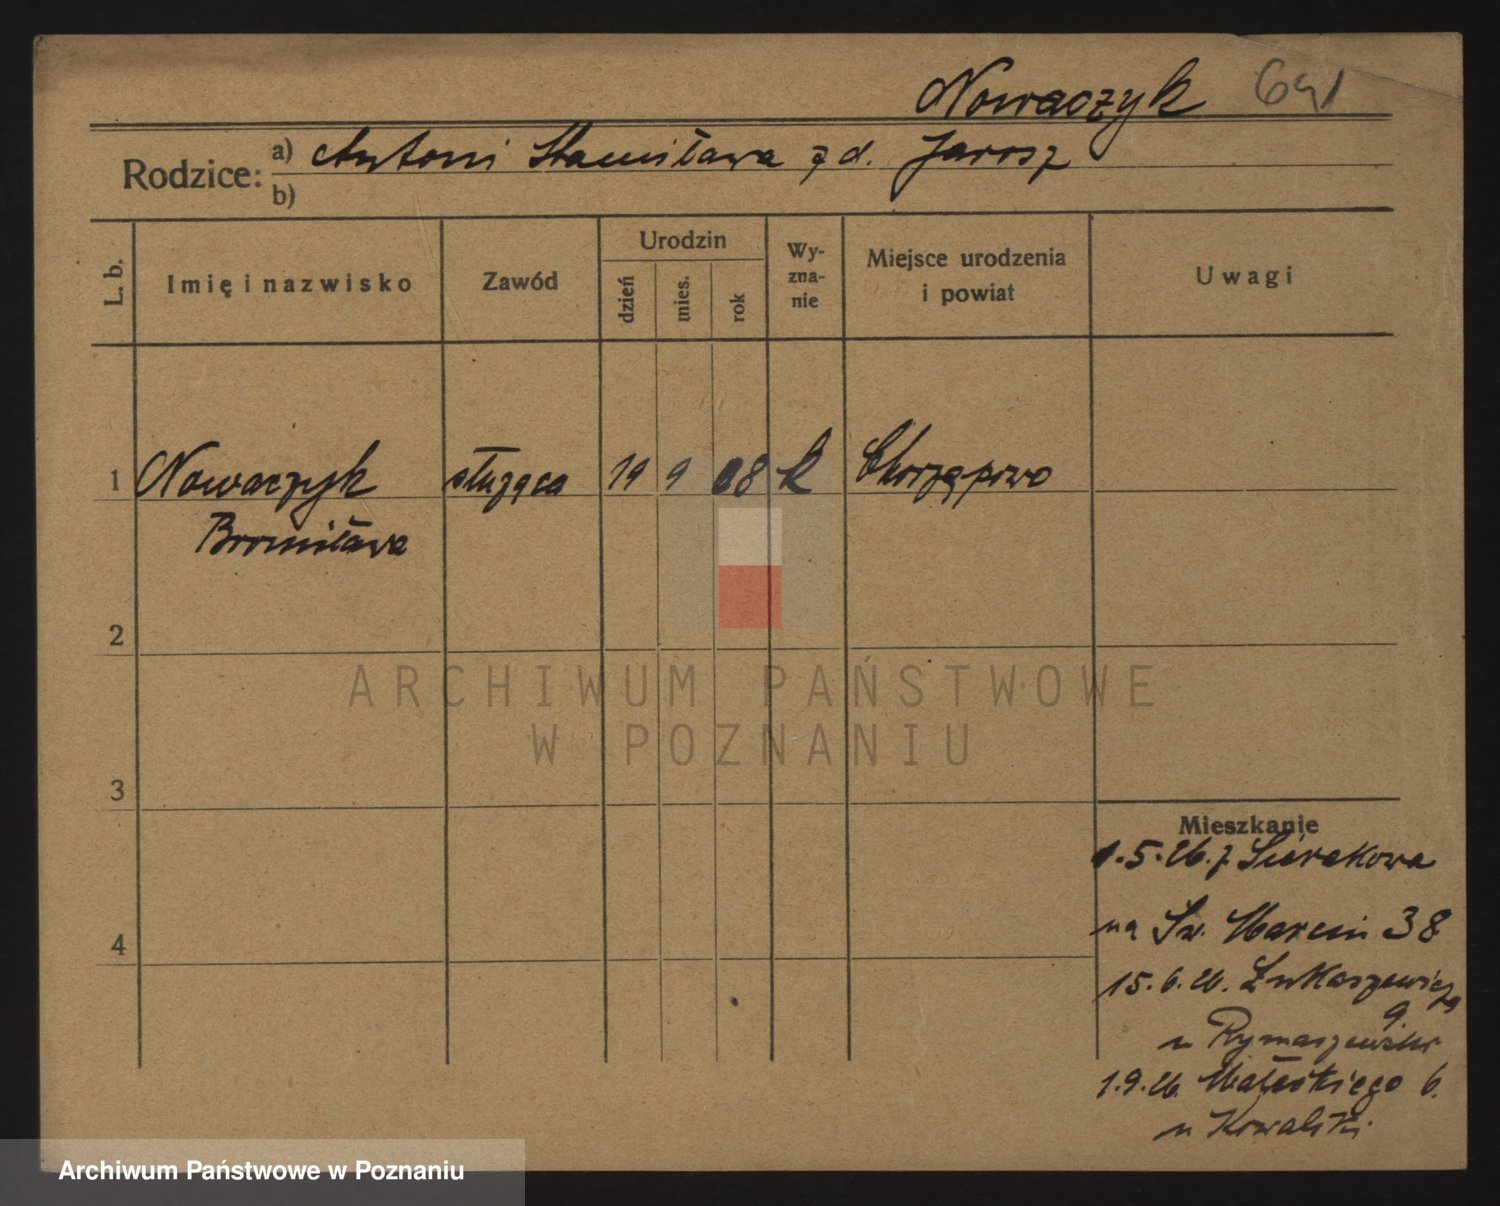 Nowaczyk 641
Rodzice: a) Antoni Stanisława z d. Jarosz
b)
L. b. Imię i nazwisko Zawód Urodzin dzień mies. rok Wy-zna-nie Miejsce urodzenia i powiat Uwagi
1 Nowaczyk służąca 19 9 08 k Chorzępowo
Bronisława
2
ARCHIWUM PAŃSTWOWE
W POZNANIU
3
Mieszkanie
1.5.26. z Sierakowa
4
na Św. Marcin 38
15.6.26. Łukaszewicza
9.
u Rymaszewski
1.9.26. Małeckiego 6.
u Kowalski.
Archiwum Państwowe w Poznaniu